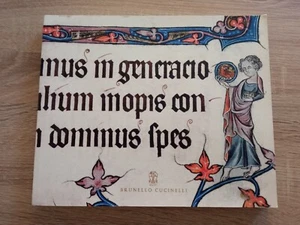 mus in generacio
lium inopis con
n dominus spes
BRUNELLO CUCINELLI